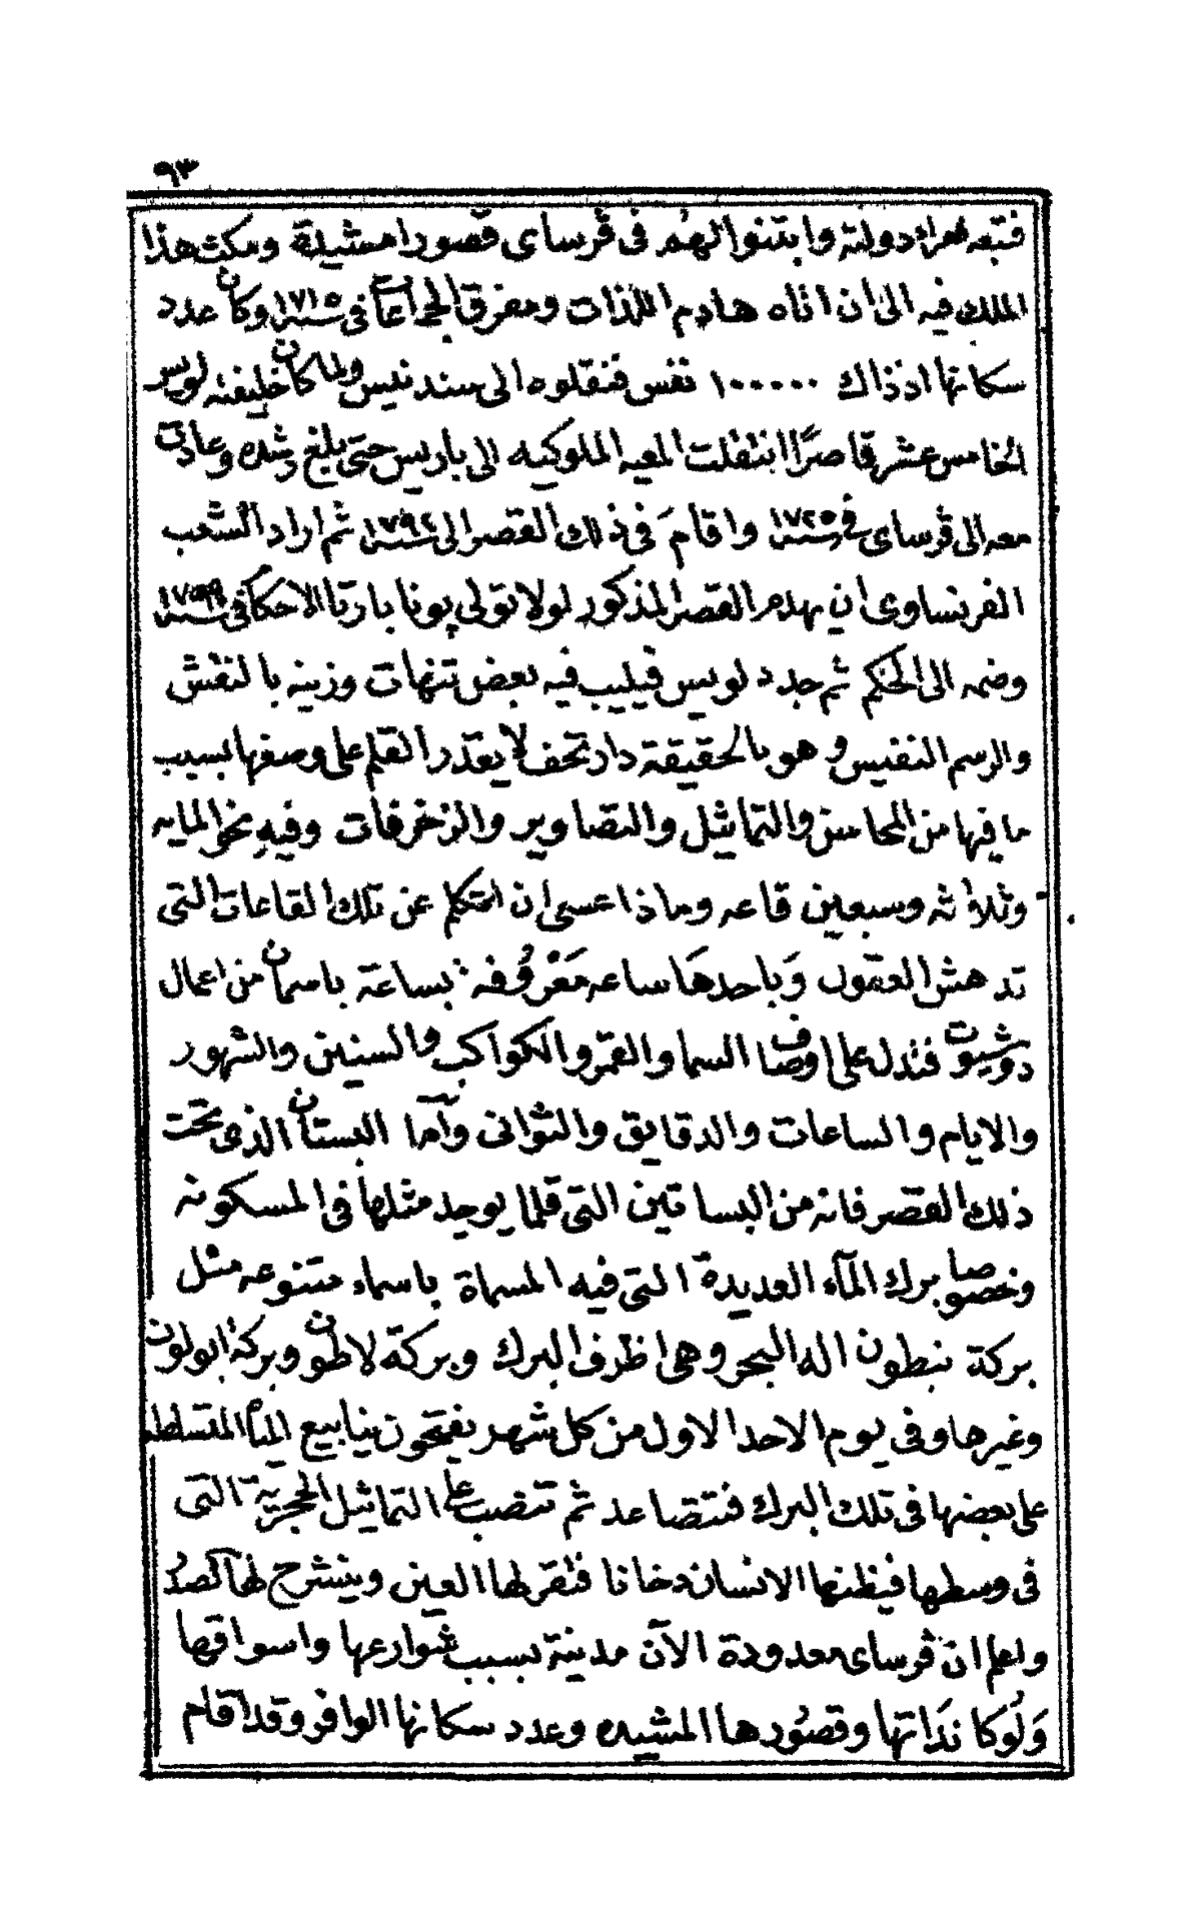 ٩٣
فتبعه امراء دولته وابتنوا لهم في ڤرساى قصورا مشيدة ومكث هذا
الملك فيه الى ان اتاه هادم اللذات ومفرق الجماعات في سنة ١٧١٥ وكان عدد
سكانها اذ ذاك ١٠٠٠٠٠ نفس فنقلوه الى سندنيس ولما كان خليفته لويس
الخامس عشر قاصرًا انتقلت المعيه الملوكيه الى باريس حتى بلغ رشده وعادت
معه الى ڤرساى في سنة ١٧٢٥ واقامَ في ذلك القصر الى سنة ١٧٩٢ ثم اراد الشعب
الفرنساوى ان يهدم القصر المذكور لولا تولى پونا بارتا الاحكام في سنة ١٧٩٩
وضمه الى الحكم ثم جدد لويس فيليب فيه بعض تنهات وزينه بالنقش
والرسم النفيس وهو بالحقيقة دار تحف لا يقدر القلم على وصفها بسبب
ما فيها من المحاسن والتماثيل والتصاوير والزخرفات وفيهِ نحو المايه
وثلاثه وسبعين قاعه وماذا عسى ان اتكلم عن تلك القاعات التى
تدهش العقول وَباحدهَا ساعه مَعْرُوفه بساعة باسمان من اعمال
دوشيون فتدل على اوصاف السما والقمر والكواكب والسنين والشهور
والايام والساعات والدقايق والثوانى وأما البستان الذى تحت
ذلك القصر فانه من البساتين التى قلما يوجد مثلها في المسكونه
وخصوصا برك المآء العديدة التى فيه المسماة باسماء متنوعه مثل
بركة نبطون اله البحر وهى اظرف البرك وبركة لاطون وبركة ابولون
وغيرها وفي يوم الاحد الاول من كل شهر يفتحون ينابيع المياه المتسلطه
على بعضها في تلك البرك فتتصاعد ثم تنصب على التماثيل الحجرية التى
في وسطها فيظنها الانسان دخانا فتقر لها العين وينشرح لها الصدُر
ولعلم ان ڤرساى معدودة الآن مدينة بسبب شوارعها واسواقها
وَلُوكانداتها وقصُورها المشيده وعدد سكانها الوافر وقد اقام